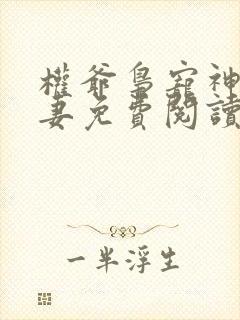 權爺梟寵神
妻免費閱讀
一半浮生